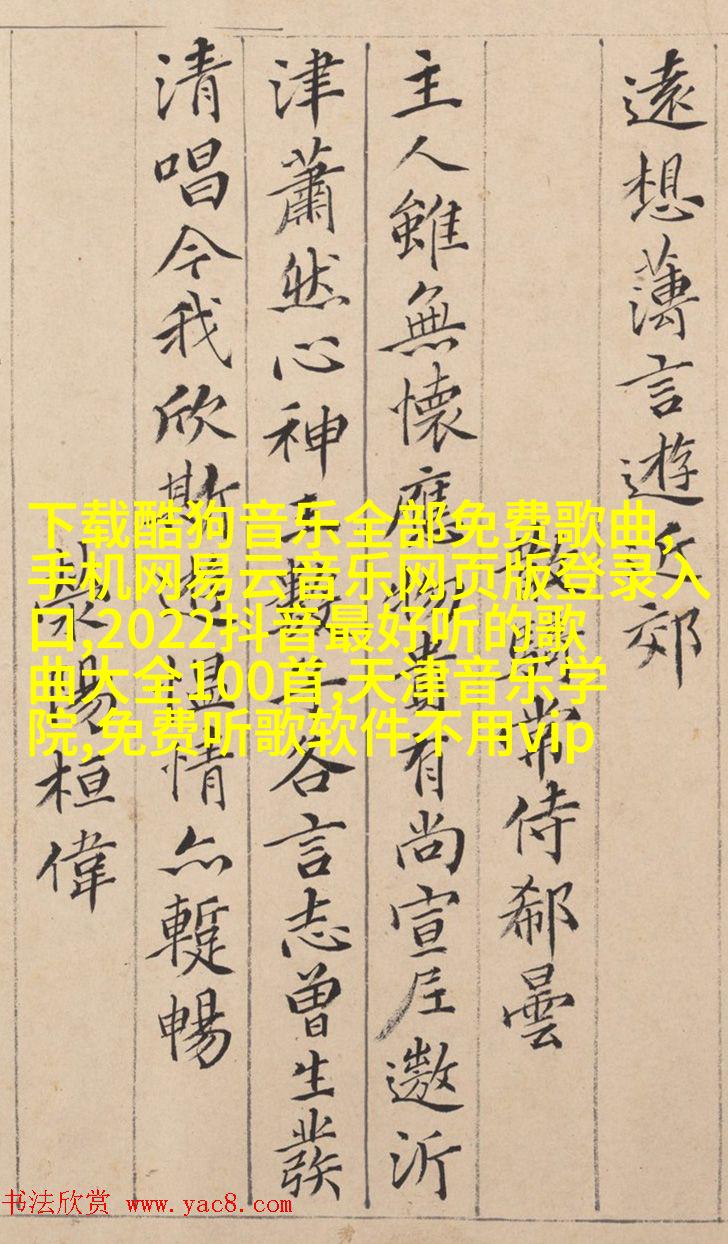 遠想薄言遊近郊
散騎常侍郗曇
主人雖無懷應物貴有尚宣尼遨沂
津蕭然心神王數子各言志曾生發
清唱今我欣斯遊慍情亦蹔暢
滎陽桓偉
下载酷狗音乐全部免费歌曲,
手机网易云音乐网页版登录入
口,2022抖音最好听的歌
曲大全100首,天津音乐学
院,免费听歌软件不用vip
书法欣赏 www.yac8.com